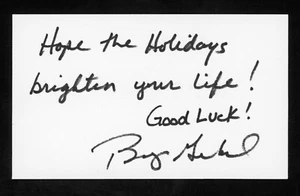 Hope the Holidays
brighten your life!
Good Luck!